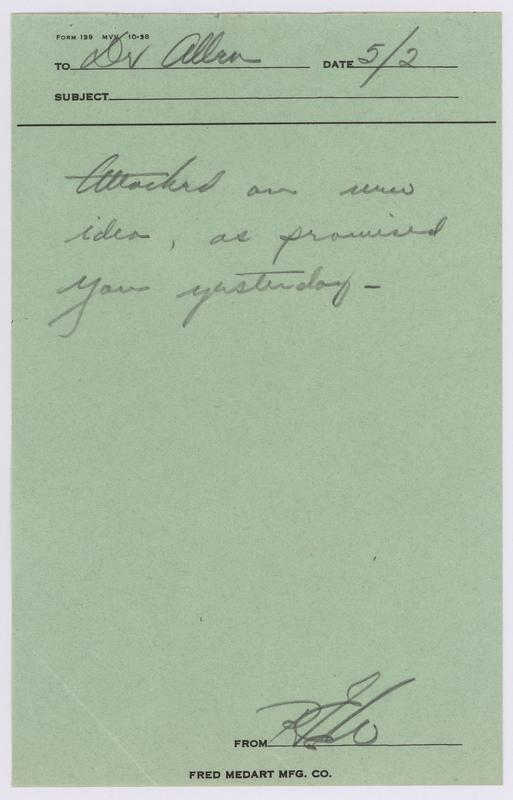 FORM 139 MVM 10-38
TO Dr Allen DATE 5/2
SUBJECT
Attached our new
idea, as promised
you yesterday -
FROM
FRED MEDART MFG. CO.